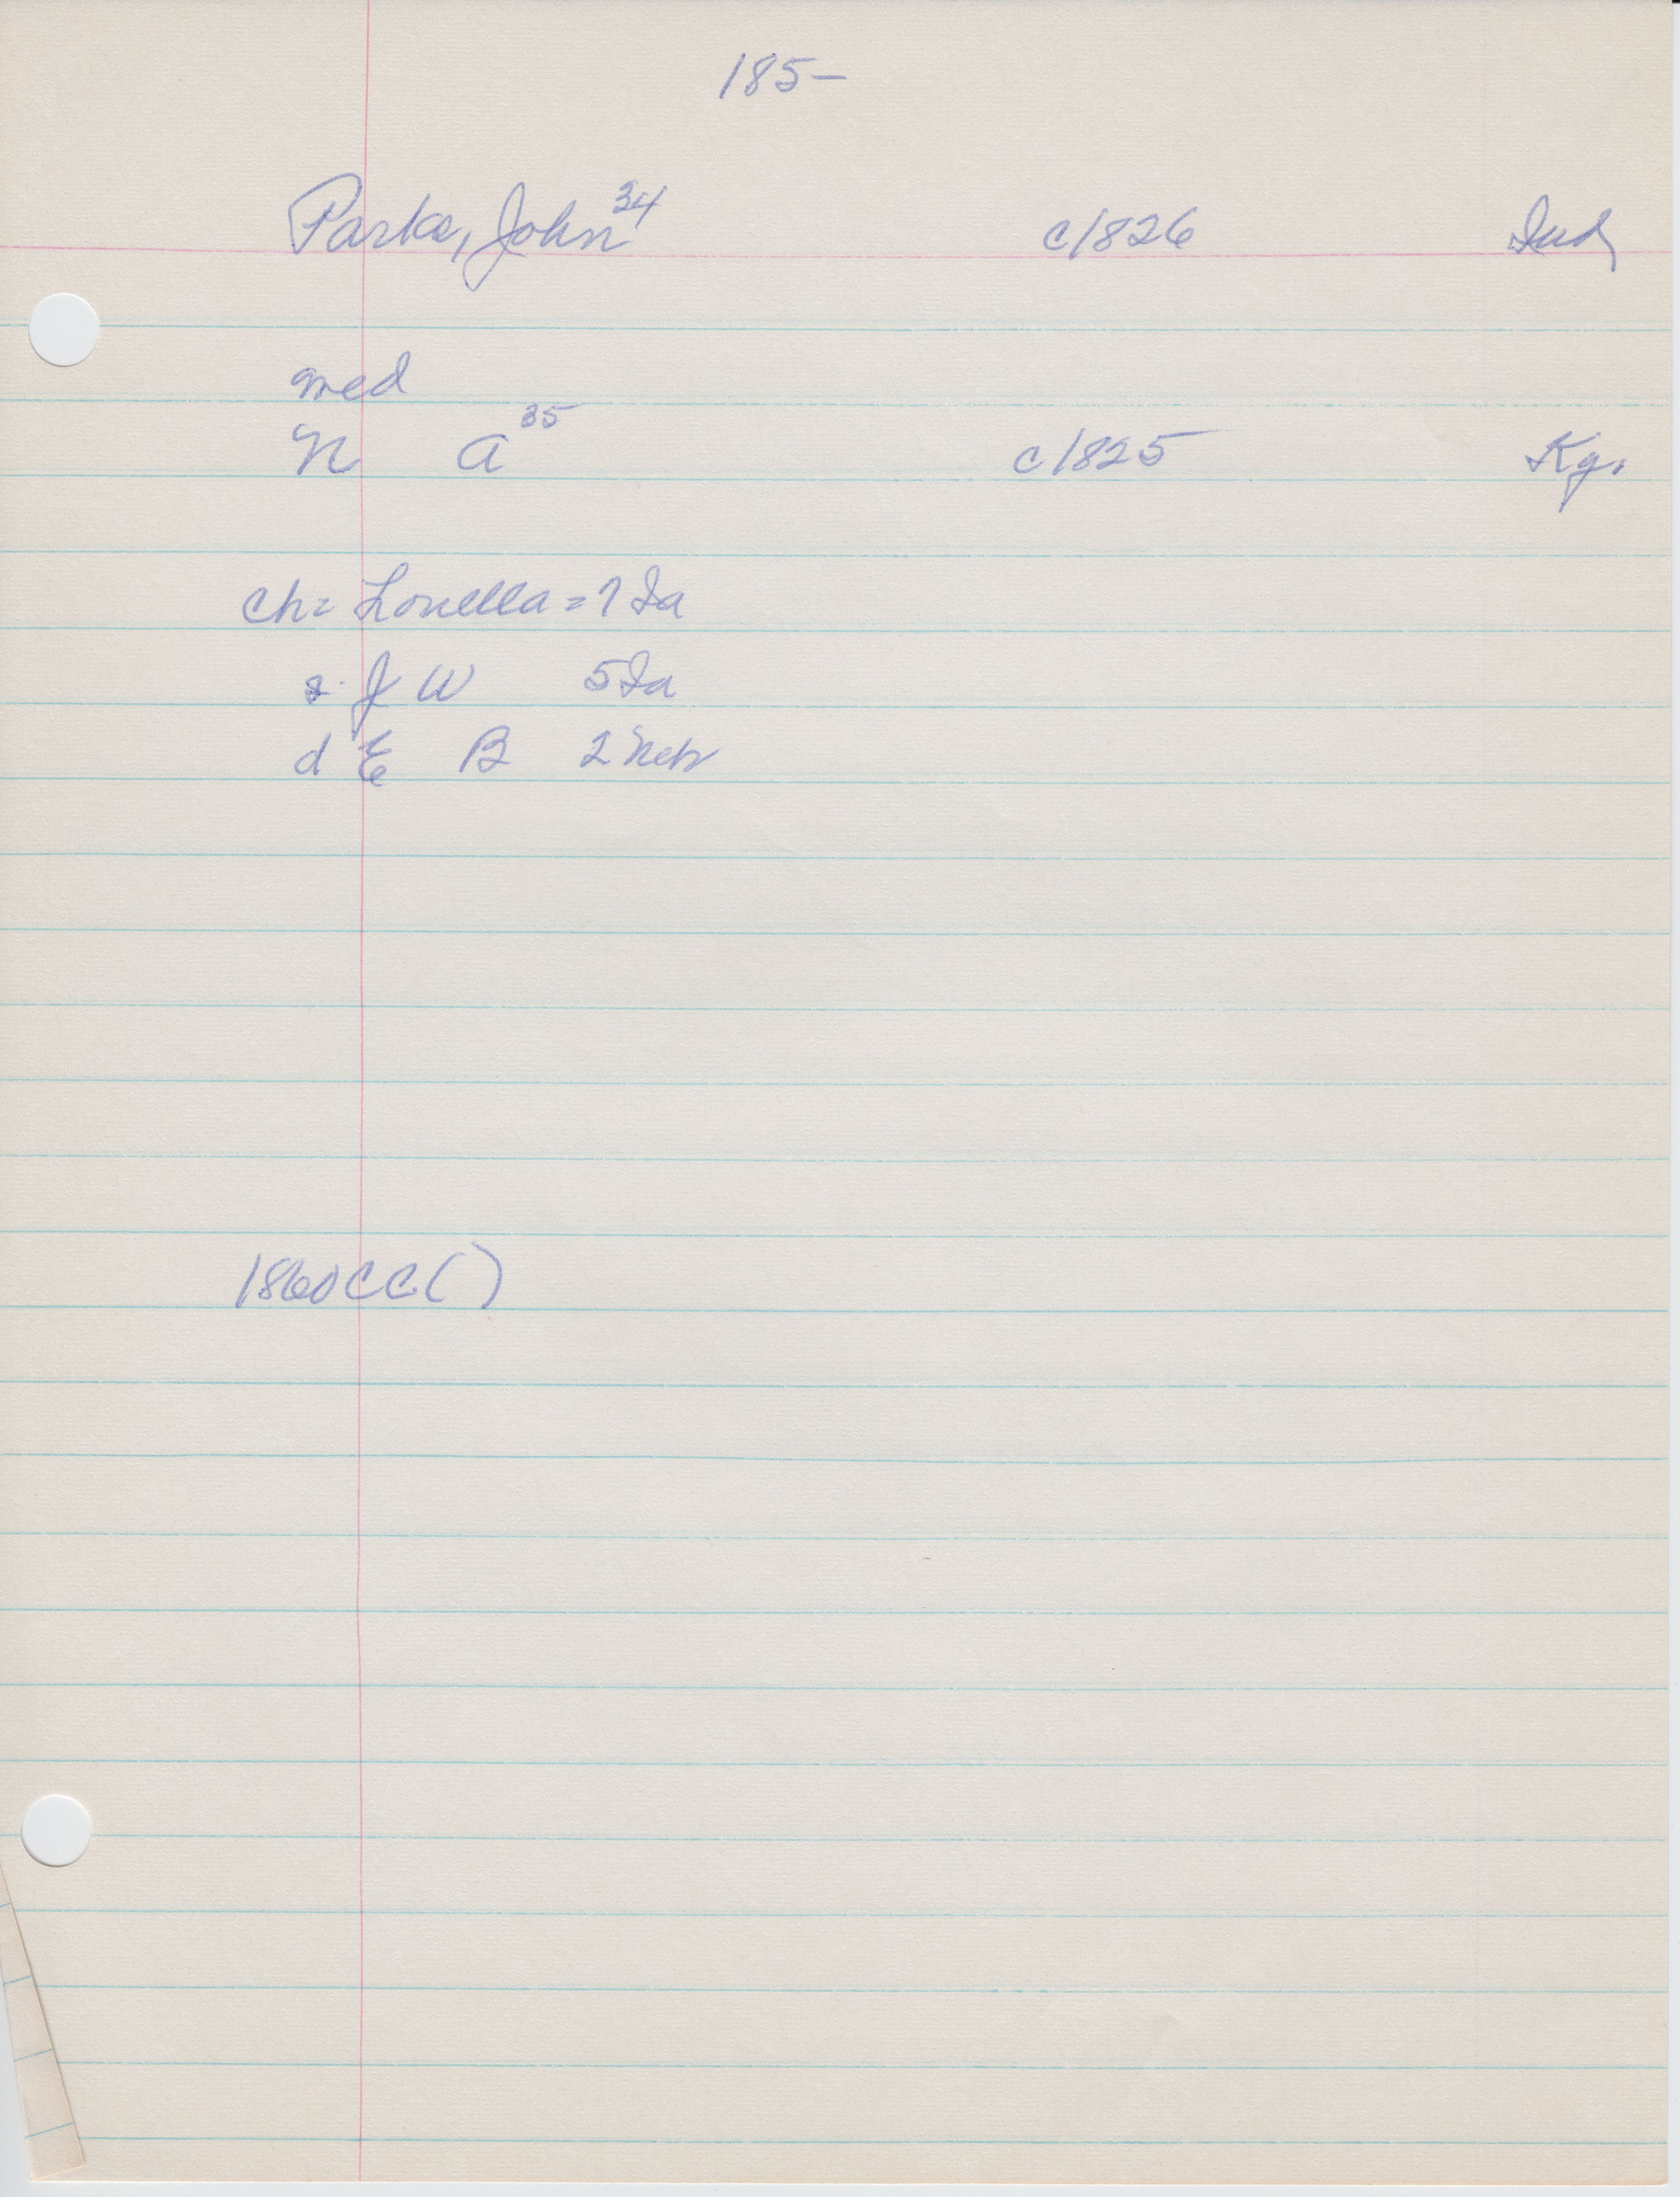 185-
Parks, John 34 c1826 Ind
med
N A 35 c1825 Ky.
ch= Louella = 7 Ia
s. J W 5 Ia
d E B 2 Neb
1860CC( )